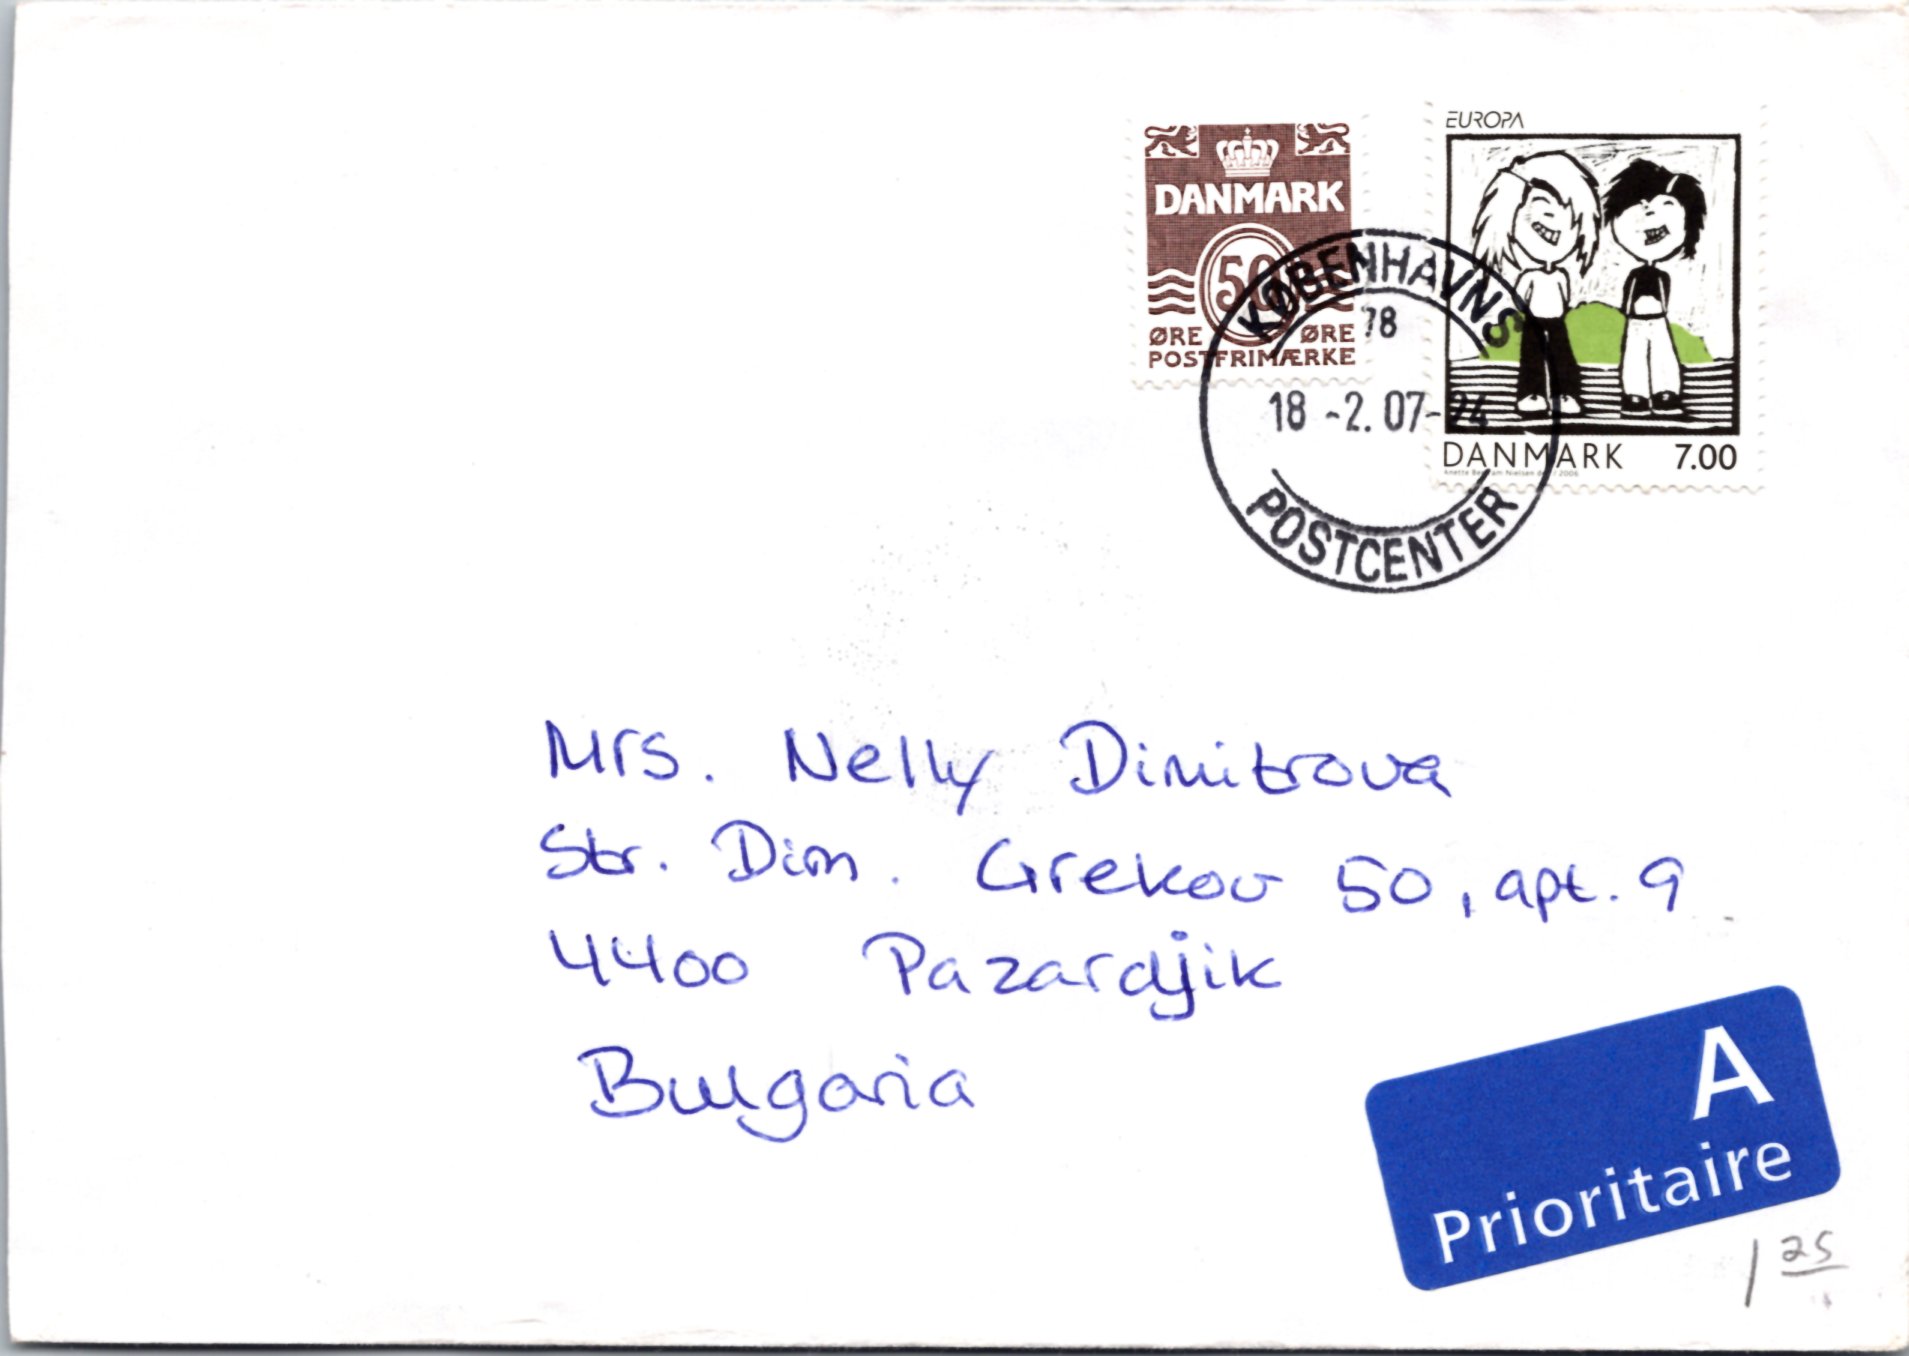 EUROPA
DANMARK
50
ØRE ØRE
POSTFRIMÆRKE
DANMARK 7.00
2006
KØBENHAVNS
78
18 -2. 07-24
POSTCENTER
Mrs. Nelly Dimitrova
Str. Dim. Grekov 50, apt. 9
4400 Pazardjik
Bulgaria
A
Prioritaire
1 25